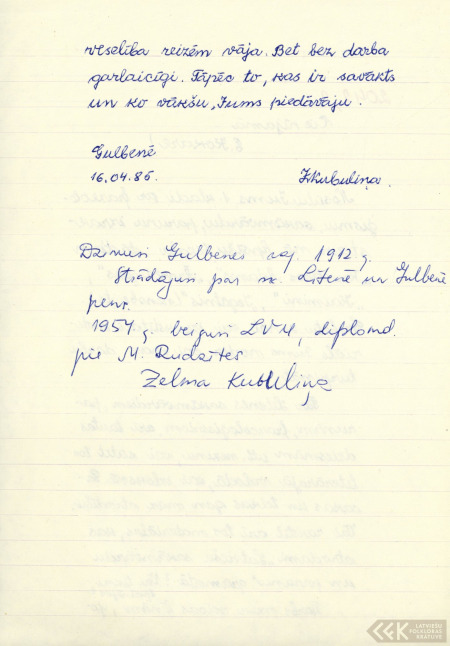 veselība reizēm vāja. Bet bez darba
garlaicīgi. Tāpēc to, kas ir savākts
un ko vākšu, Jums piedāvāju.
Gulbenē
16.04.86.
Z.Kubuliņa.
Dzimusi Gulbenes raj 1912 g.
Strādājusi par sk. Litenē un Gulbenē
pens.
1954 g beigusi LVU, diplomd.
pie M. Rudzītes
Zelma Kubuliņa
LATVIEŠU
FOLKLORAS
KRĀTUVE